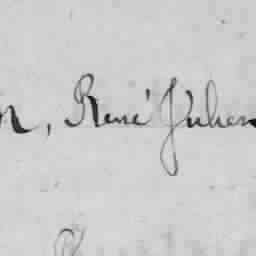 n, René Julien